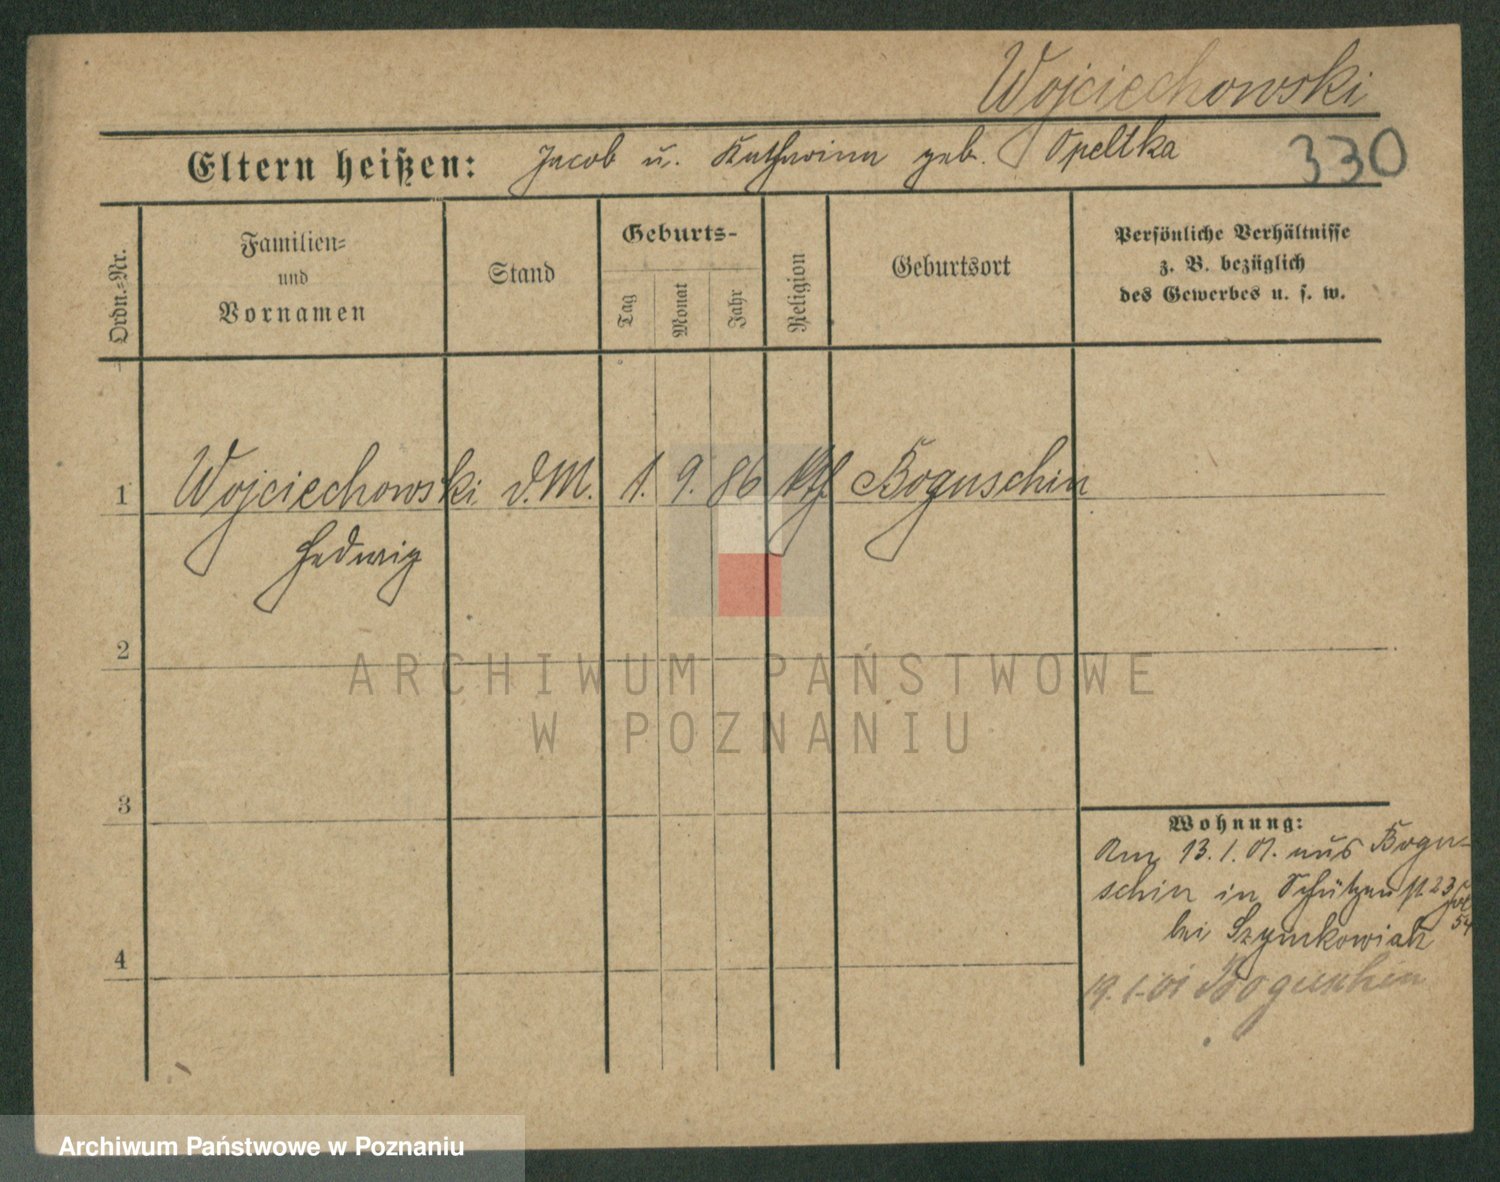 Wojciechowski
Eltern heißen: Jacob u. Katharina geb. Speltka
330
Ordn.-Nr.
Familien-
und
Vornamen
Stand
Geburts-
Tag
Monat
Jahr
Religion
Geburtsort
Persönliche Verhältnisse
z. B. bezüglich
des Gewerbes u. s. w.
1 Wojciechowski d. M. 1. 9. 86 Boguschin
Hedwig
2
ARCHIWUM PAŃSTWOWE
W POZNANIU
3
Wohnung:
Am 13.1.01. aus Bogu-
schin in Schützen st. 23
54
bei Szymkowiak
4
19.1.01 Boguschin
Archiwum Państwowe w Poznaniu